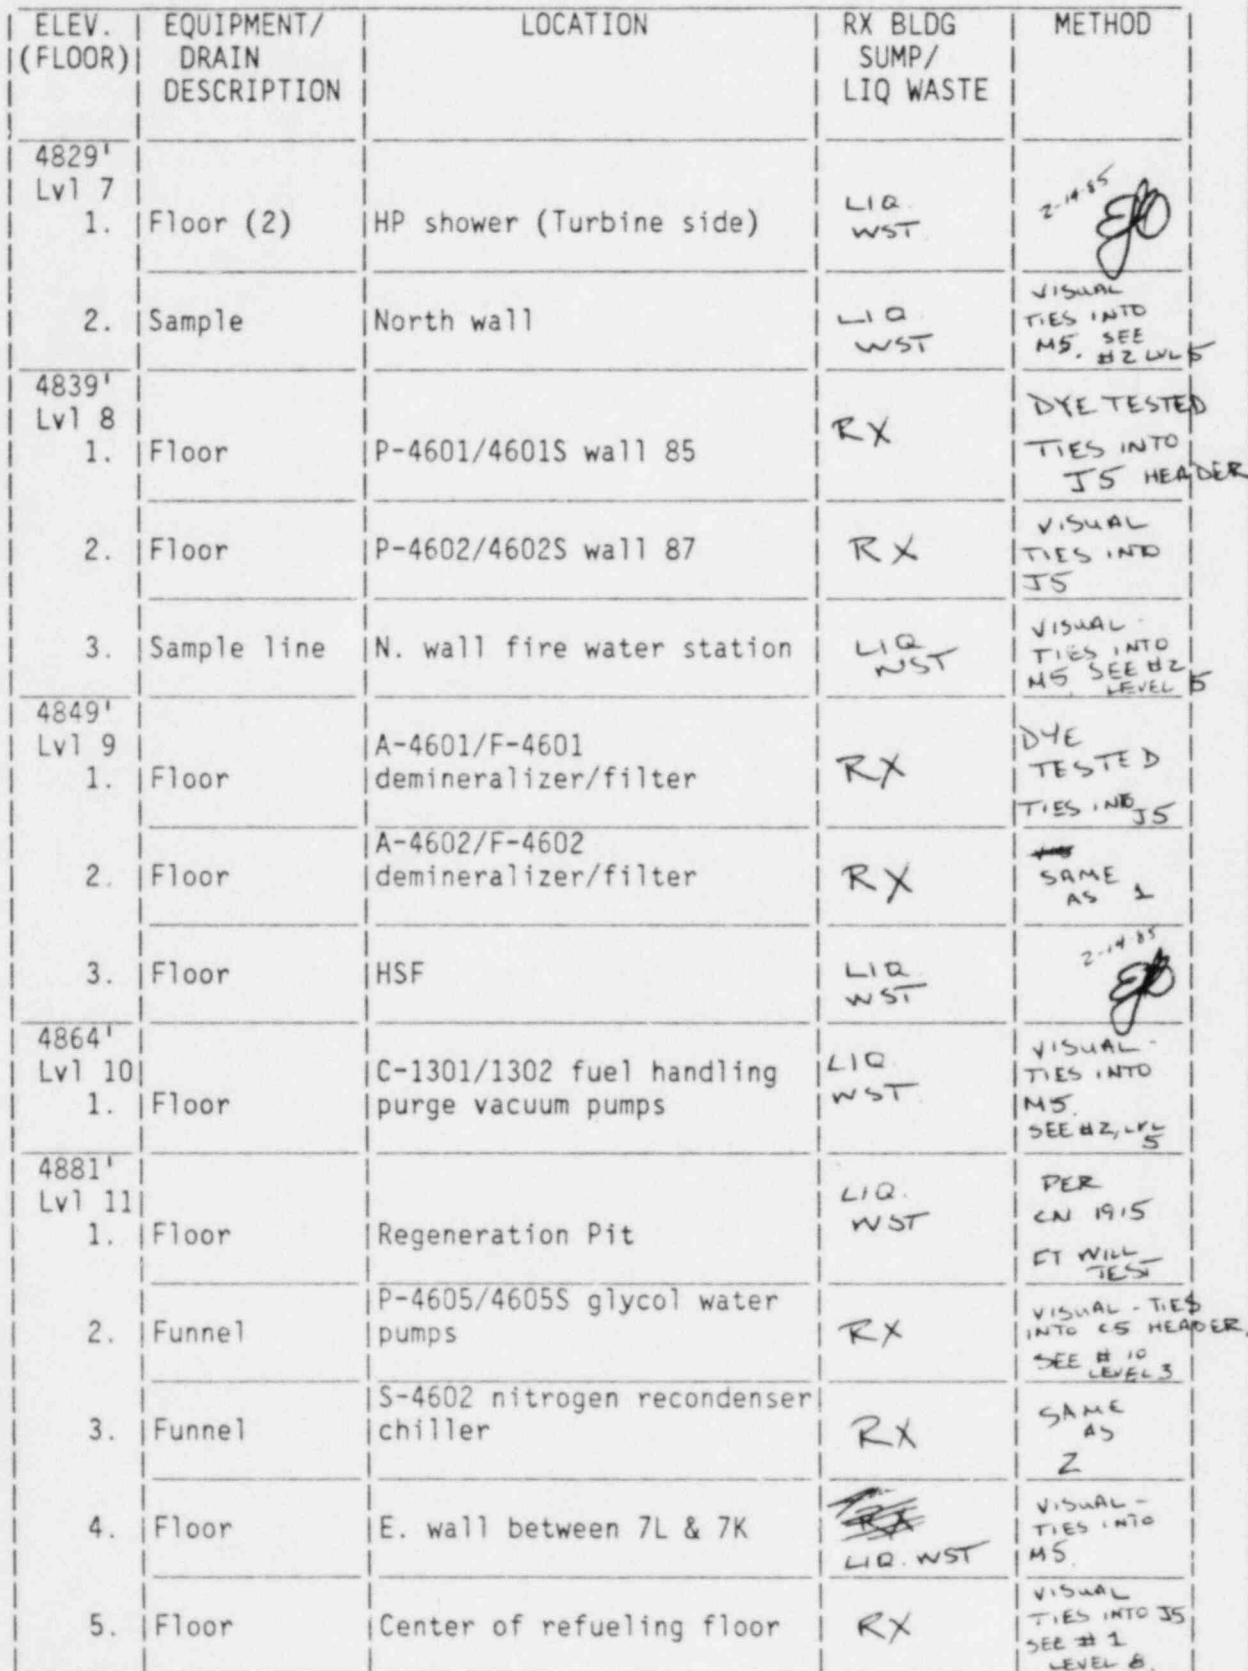 ELEV. EQUIPMENT/ LOCATION RX BLDG METHOD
(FLOOR) DRAIN SUMP/
DESCRIPTION LIQ WASTE
4829'
Lvl 7
1. Floor (2) HP shower (Turbine side) LIQ. WST 2-14-85
2. Sample North wall LIQ WST
VISUAL
TIES INTO
M5. SEE
#2 LVL 5
4839'
Lvl 8
1. Floor P-4601/4601S wall 85 RX
DYE TESTED
TIES INTO
J5 HEADER
2. Floor P-4602/4602S wall 87 RX
VISUAL
TIES INTO
J5
3. Sample line N. wall fire water station LIQ WST
VISUAL -
TIES INTO
M5 SEE #2
LEVEL 5
4849'
Lvl 9
A-4601/F-4601
1. Floor demineralizer/filter RX
DYE
TESTED
TIES INTO J5
A-4602/F-4602
2. Floor demineralizer/filter RX
SAME
AS 1
3. Floor HSF LIQ WST 2-14-85
4864'
Lvl 10
C-1301/1302 fuel handling
1. Floor purge vacuum pumps LIQ WST
VISUAL -
TIES INTO
M5.
SEE #2, LVL
5
4881'
Lvl 11
1. Floor Regeneration Pit LIQ. WST
PER
CN 1915
FT WILL
TEST
P-4605/4605S glycol water
2. Funnel pumps RX
VISUAL - TIES
INTO C5 HEADER.
SEE # 10
LEVEL 3
S-4602 nitrogen recondenser
3. Funnel chiller RX
SAME
AS
2
4. Floor E. wall between 7L & 7K RX
LIQ. WST
VISUAL -
TIES INTO
M5.
5. Floor Center of refueling floor RX
VISUAL
TIES INTO J5
SEE # 1
LEVEL 8.